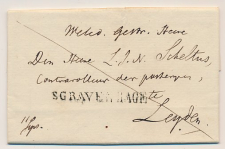 Weled. Gestr. Heere
Den Heere L.J.N. Scheltus,
Controlleur der posteryen,
SGRAVENHAGE te
Leyden